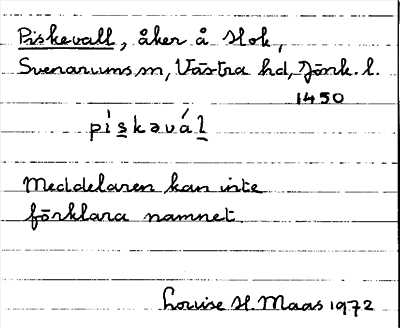 Piskevall, åker å Hok,
Svenarums sn, Västra hd, Jönk. l.
1450
pi̍s̲kəvál̲
Meddelaren kan inte
förklara namnet.
Louise H. Maas 1972